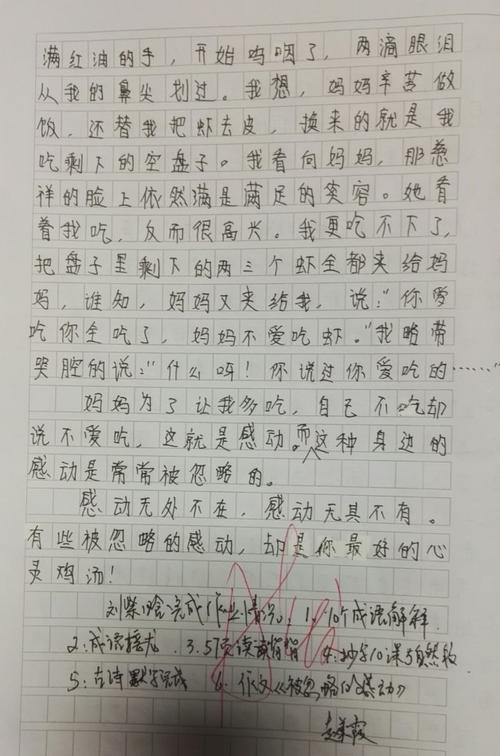 满红油的手，开始呜咽了，两滴眼泪
从我的鼻尖划过。我想，妈妈辛苦做
饭，还替我把虾去皮，换来的就是我
吃剩下的空盘子。我看向妈妈，那慈
祥的脸上依然满是满足的笑容。她看
着我吃，反而很高兴。我更吃不下了，
把盘子里剩下的两三个虾全都夹给妈
妈，谁知，妈妈又夹给我，说："你爱
吃你全吃了，妈妈不爱吃虾。"我略带
哭腔的说："什么呀！你说过你爱吃的……"
妈妈为了让我多吃，自己不吃却
说不爱吃，这就是感动。而这种身边的
感动是常常被忽略的。
感动无处不在，感动无具不有。
有些被忽略的感动，却是你最好的心
灵鸡汤！
刘紫晗完成作业情况：1、10个成语解释
2：成语接龙 3.57页读诵背 4：抄写10课
5：古诗默写完读 6：作文《被忽略的感动》